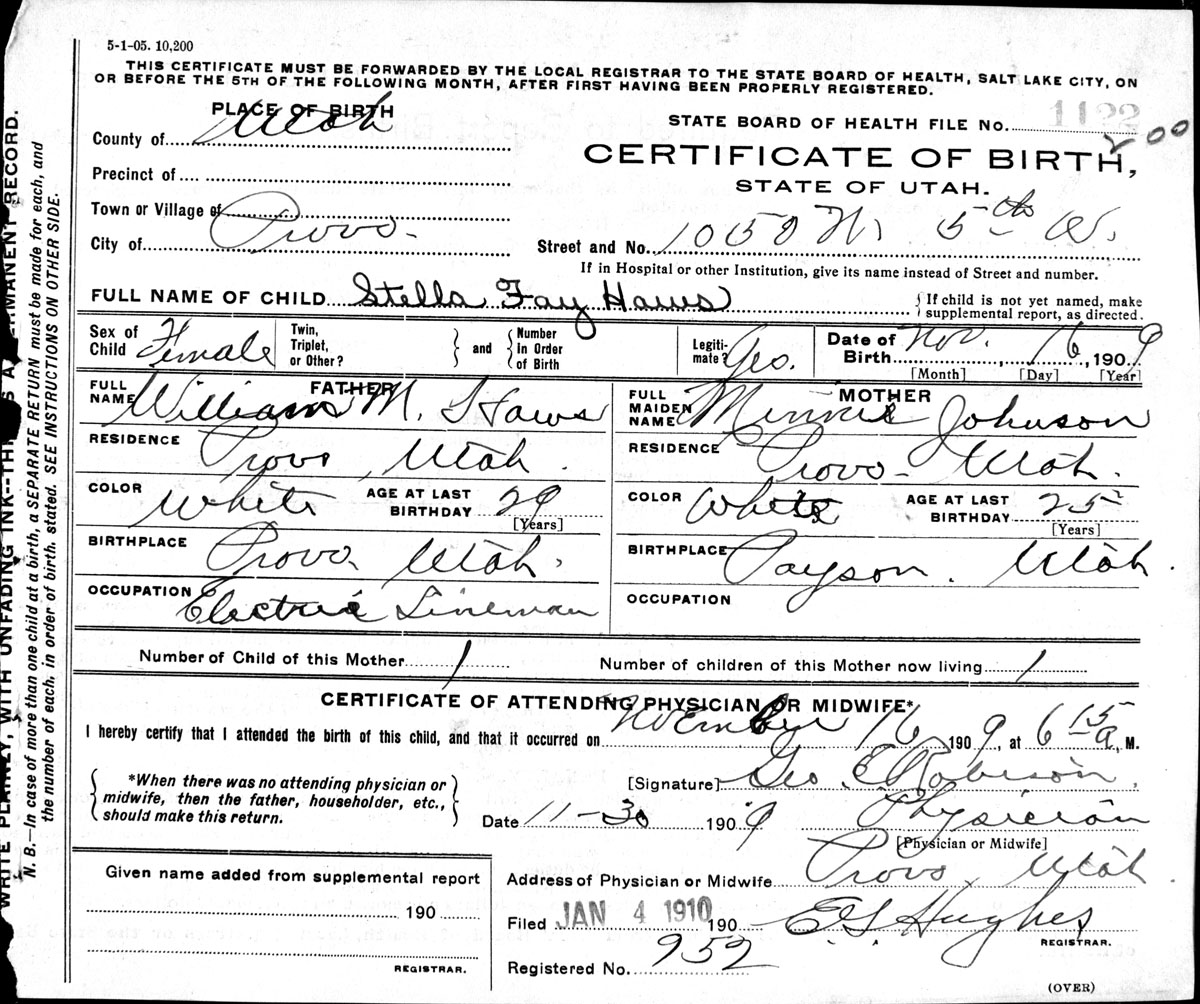 5-1-05. 10,200
THIS CERTIFICATE MUST BE FORWARDED BY THE LOCAL REGISTRAR TO THE STATE BOARD OF HEALTH, SALT LAKE CITY, ON
OR BEFORE THE 5TH OF THE FOLLOWING MONTH, AFTER FIRST HAVING BEEN PROPERLY REGISTERED.
PLACE OF BIRTH
STATE BOARD OF HEALTH FILE No. 1122
200
County of Utah
CERTIFICATE OF BIRTH,
STATE OF UTAH.
Precinct of
Town or Village of
City of Provo
Street and No. 1050 N. 5th W.
If in Hospital or other Institution, give its name instead of Street and number.
FULL NAME OF CHILD Stella Fay Haws
{ If child is not yet named, make
supplemental report, as directed.
Sex of Child Female
Twin, Triplet, or Other?
} and {
Number In Order of Birth
Legiti-mate?
Date of Birth Nov. 16 1909
[Month] [Day] [Year]
FATHER
FULL NAME William M. Haws
RESIDENCE Provo, Utah.
COLOR White AGE AT LAST BIRTHDAY 29
[Years]
BIRTHPLACE Provo. Utah.
OCCUPATION Electric Lineman
MOTHER
FULL MAIDEN NAME Minnie Johnson
RESIDENCE Provo- Utah.
COLOR White AGE AT LAST BIRTHDAY 25
[Years]
BIRTHPLACE Payson. Utah.
OCCUPATION
Number of Child of this Mother 1 Number of children of this Mother now living 1
CERTIFICATE OF ATTENDING PHYSICIAN OR MIDWIFE*
I hereby certify that I attended the birth of this child, and that it occurred on November 16 1909, at 6 15 a, M.
{ *When there was no attending physician or
midwife, then the father, householder, etc.,
should make this return. }
[Signature] Geo. E. Robison,
Date 11-30 1909 Physician
[Physician or Midwife]
Given name added from supplemental report
190
REGISTRAR.
Address of Physician or Midwife Provo, Utah
Filed JAN 4 1910 190 E. G. Hughes
REGISTRAR.
Registered No. 952
(OVER)
WRITE PLAINLY, WITH UNFADING INK--THIS IS A PERMANENT RECORD.
N. B.—In case of more than one child at a birth, a SEPARATE RETURN must be made for each, and
the number of each, in order of birth, stated. SEE INSTRUCTIONS ON OTHER SIDE.